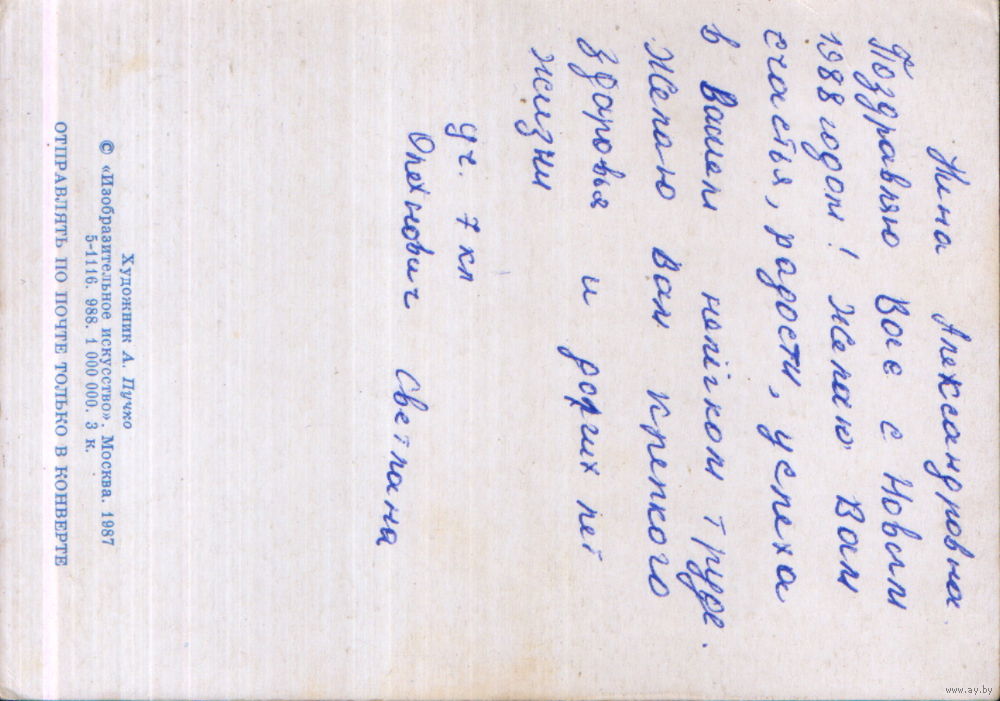 Нина Александровна
Поздравляю Вас с Новым
1988 годом! Желаю Вам
счастья, радости, успеха
в Вашем нелігком труде.
Желаю Вам крепкого
здоровья и долгих лет
жизни
уч. 7 кл
Олехнович Светлана
Художник А. Пучко
© «Изобразительное искусство». Москва. 1987
5-1116. 988. 1 000 000. 3 к.
ОТПРАВЛЯТЬ ПО ПОЧТЕ ТОЛЬКО В КОНВЕРТЕ
www.ay.by